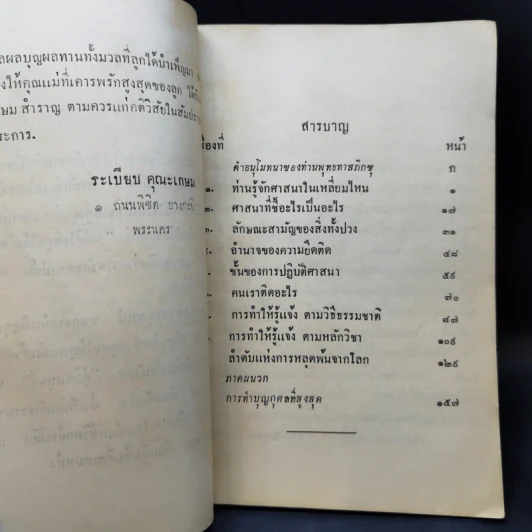 ลผลบุญผลทานทั้งมวลที่ลูกได้บำเพ็ญมา
งให้คุณแม่ที่เคารพรักสูงสุดของลูก
ษม สำราญ ตามควรแก่คติวิสัยในสัมปรา
ระการ.
ระเบียบ คุณะเกษม
๑ ถนนพิชิต บางกะปิ
พระนคร
สารบาญ
รื่องที่ หน้า
คำอนุโมทนาของท่านพุทธทาสภิกขุ ก
๑. ท่านรู้จักศาสนาในเหลี่ยมไหน ๑
๒. ศาสนาที่ชื่ออะไรเป็นอะไร ๑๗
ลักษณะสามัญของสิ่งทั้งปวง ๓๑
อำนาจของความยึดติด ๔๘
ขั้นของการปฏิบัติศาสนา ๕๙
คนเราติดอะไร ๗๐
การทำให้รู้แจ้ง ตามวิธีธรรมชาติ ๘๗
การทำให้รู้แจ้ง ตามหลักวิชา ๑๐๙
ลำดับแห่งการหลุดพ้นจากโลก ๑๒๙
ภาคผนวก
การทำบุญกุศลที่สูงสุด ๑๕๗